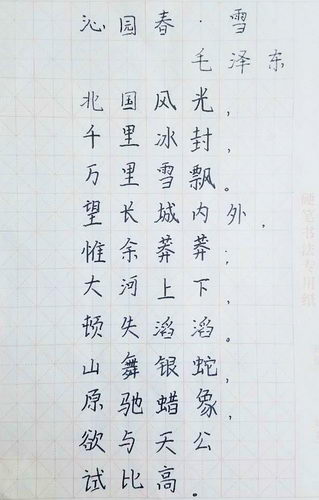 沁园春·雪
毛泽东
北国风光，
千里冰封，
万里雪飘。
望长城内外，
惟余莽莽；
大河上下，
顿失滔滔。
山舞银蛇，
原驰蜡象，
欲与天公
试比高。
硬笔书法专用纸